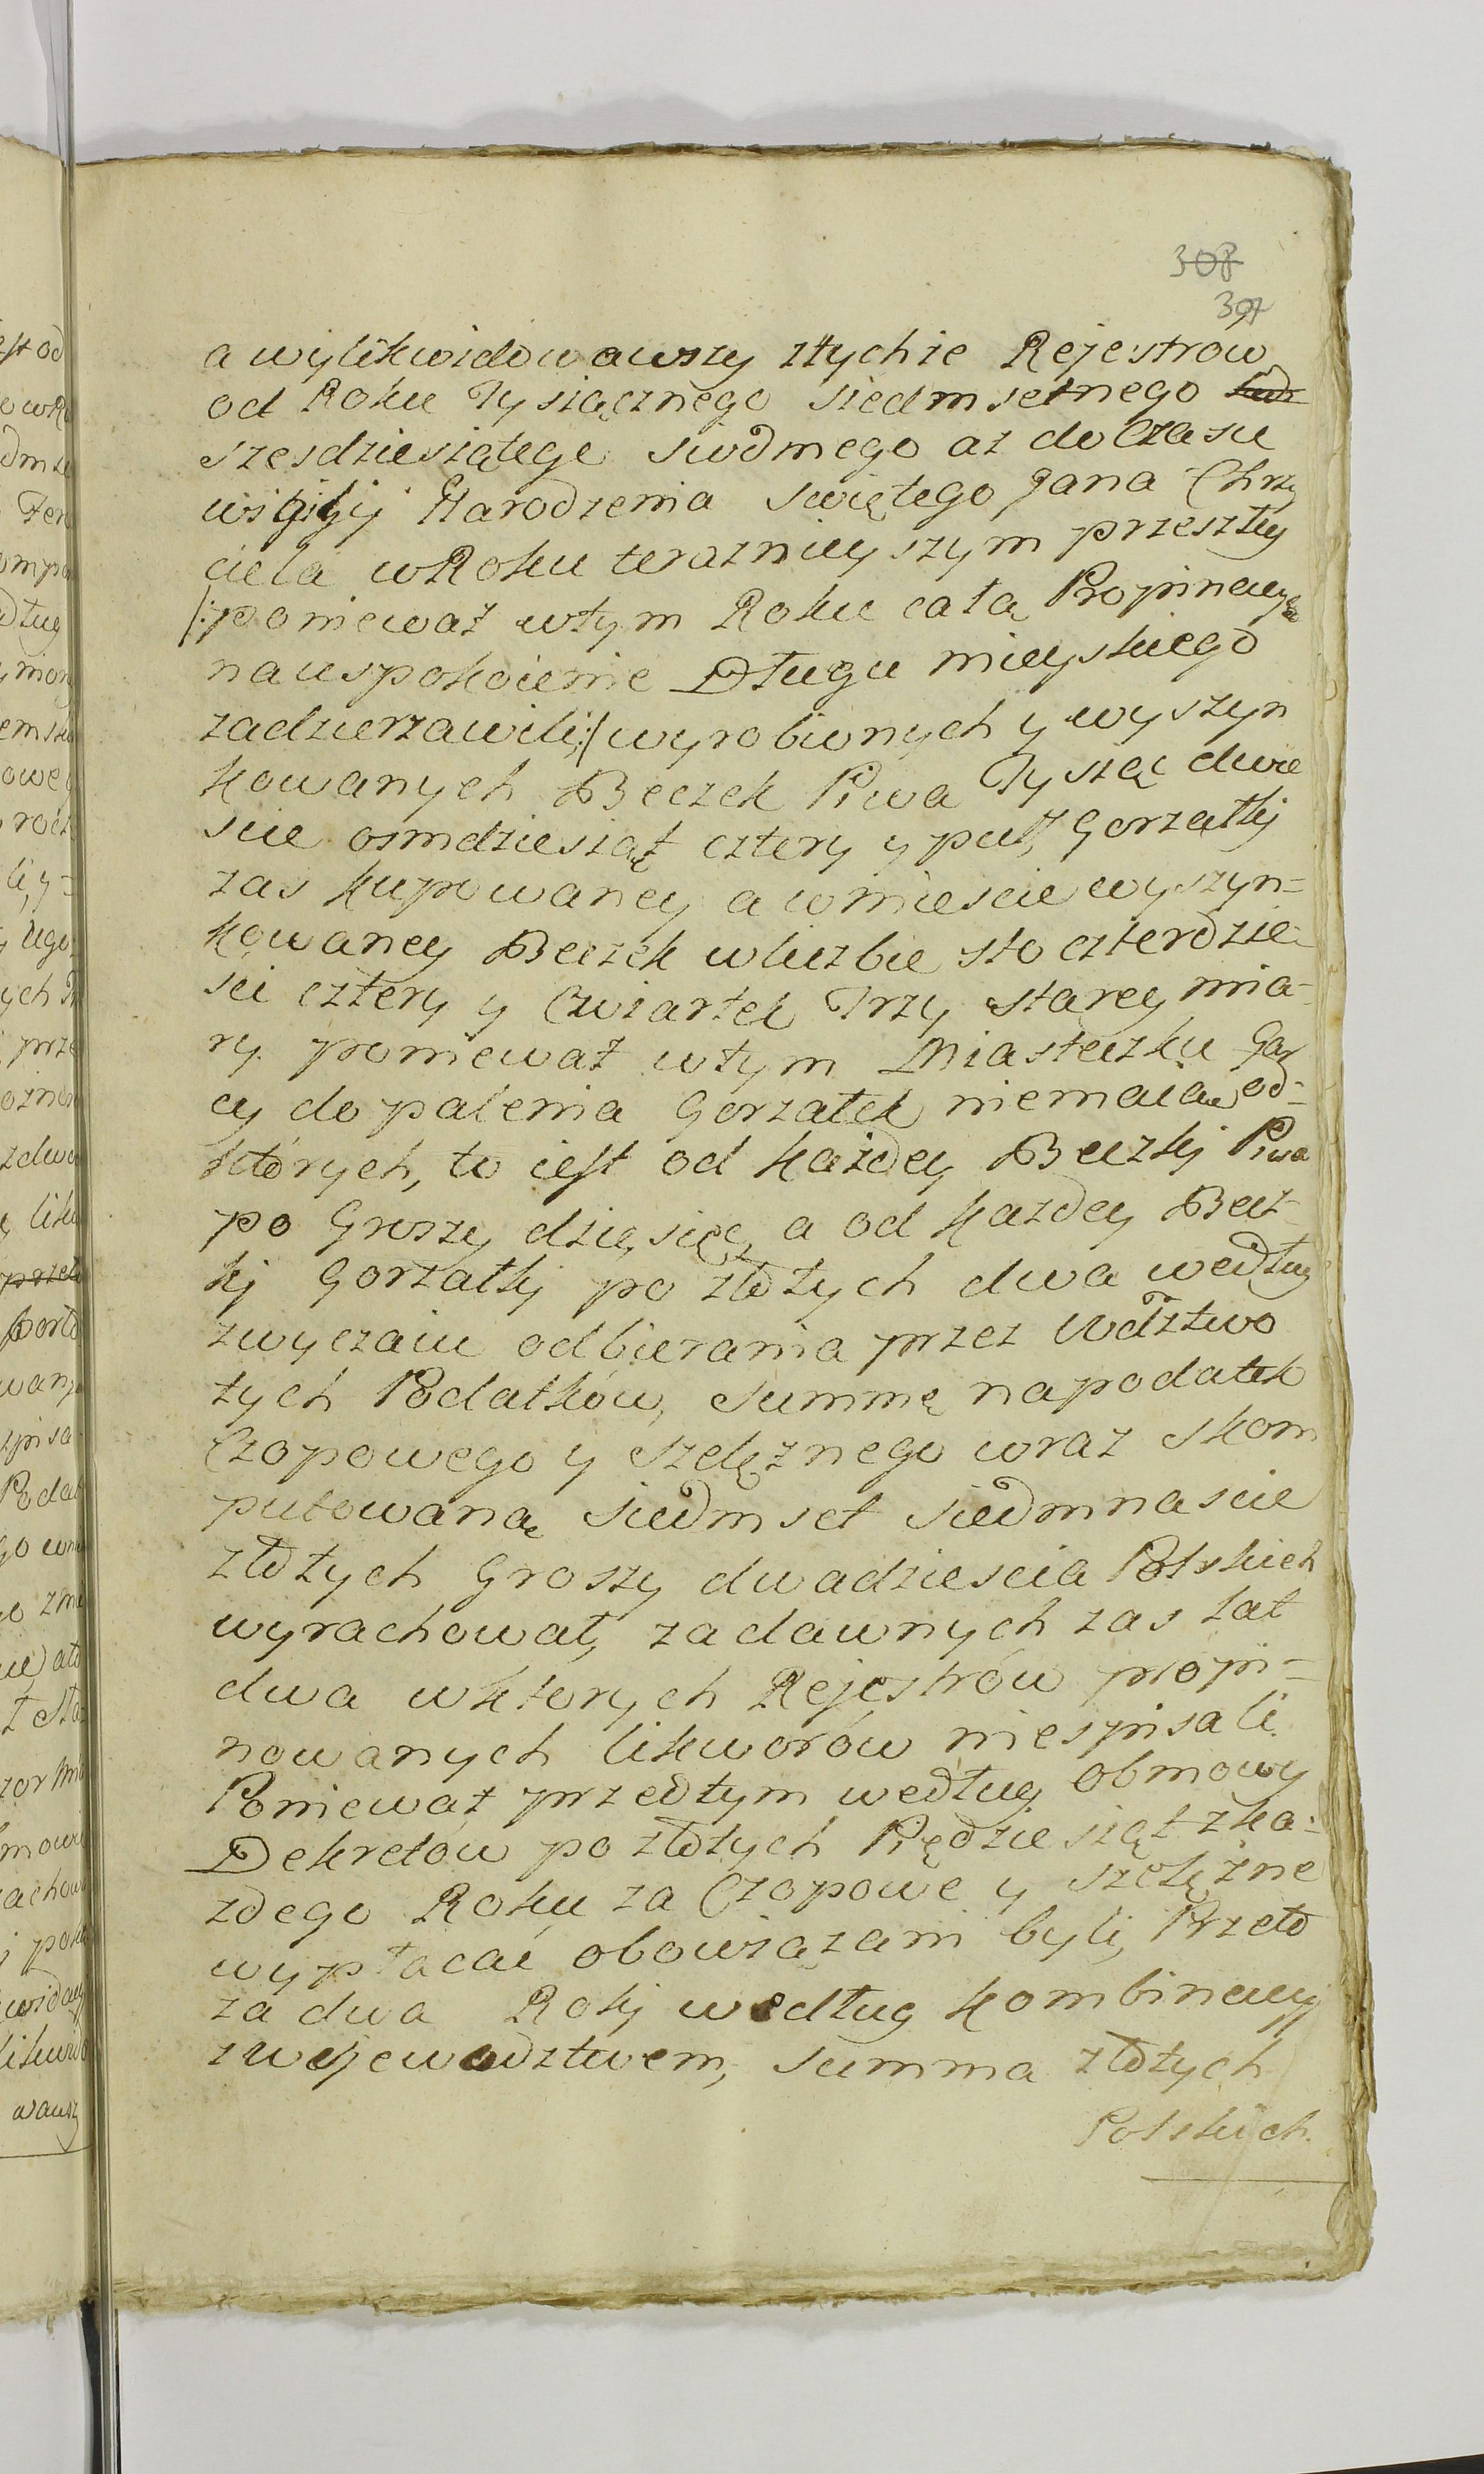 308
307
a wylikwidowawszy ztychże Rejestrow
od Roku Tysiącznego siedmsetnego
szesdziesiątego siodmego aż do Czasu
wigilij Narodzenia swiętego Jana Chrzci
ciela w Roku teraznieyszym przeszłey
/:ponieważ wtym Roku całą Propinacyą
na uspokoienie Długu mieyskiego
zadzierzawili:/ wyrobionych y wyszyn
kowanych Beczek Piwa Tysiąc dwie
scie osmdziesiąt cztery y puł, Gorzałkj
zas kupowaney a wmiescie wyszyn=
kowaney Beczek wliczbie sto czterdzie-
sci cztery y Czwiartek Trzy starey mia-
ry ponieważ wtym Miasteczku Gar
cy do palenia Gorzałek niemaią, od-
ktorych, to iest od każdey Beczkj Piwa
po Groszy dziesięc, a od każdey Becz-
kj Gorzałkj po złotych dwa według
zwyczaiu odbierania przez Wdztwo
tych Podatków, summę na podatek
Czopowego y szelężnego wraz skom
putowaną siedmset siedmnascie
złotych Groszy dwadziescia Polskich
wyrachował, za dawnych zas lat
dwa wktorych Rejestrów propi=
nowanych likworów niespisali
Ponieważ przedtym według obmowy
Dekretów po złotych Piędziesiąt zka=
żdego Roku za Czopowe y szelężne
wypłacać obowiązani byli, Przeto
za dwa Rokj według kombinacyj
z wojewodztwem, summa złotych
Polskich.